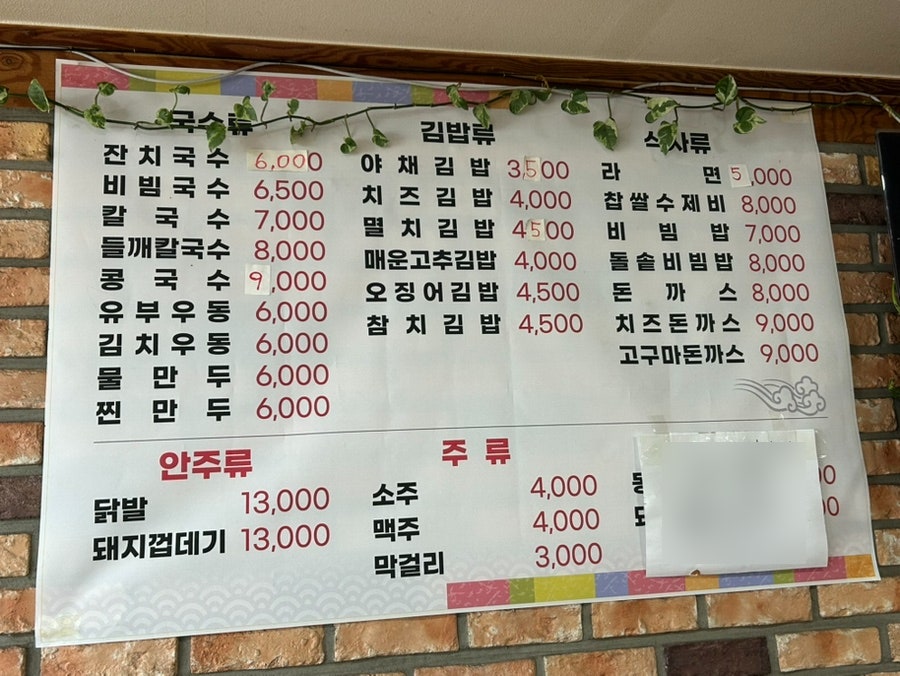 국수류
잔치국수 6,000
비빔국수 6,500
칼국수 7,000
들깨칼국수 8,000
콩국수 9,000
유부우동 6,000
김치우동 6,000
물만두 6,000
찐만두 6,000
김밥류
야채김밥 3,500
치즈김밥 4,000
멸치김밥 4,500
매운고추김밥 4,000
오징어김밥 4,500
참치김밥 4,500
식사류
라면 5,000
찹쌀수제비 8,000
비빔밥 7,000
돌솥비빔밥 8,000
돈까스 8,000
치즈돈까스 9,000
고구마돈까스 9,000
안주류
닭발 13,000
돼지껍데기 13,000
주류
소주 4,000
맥주 4,000
막걸리 3,000